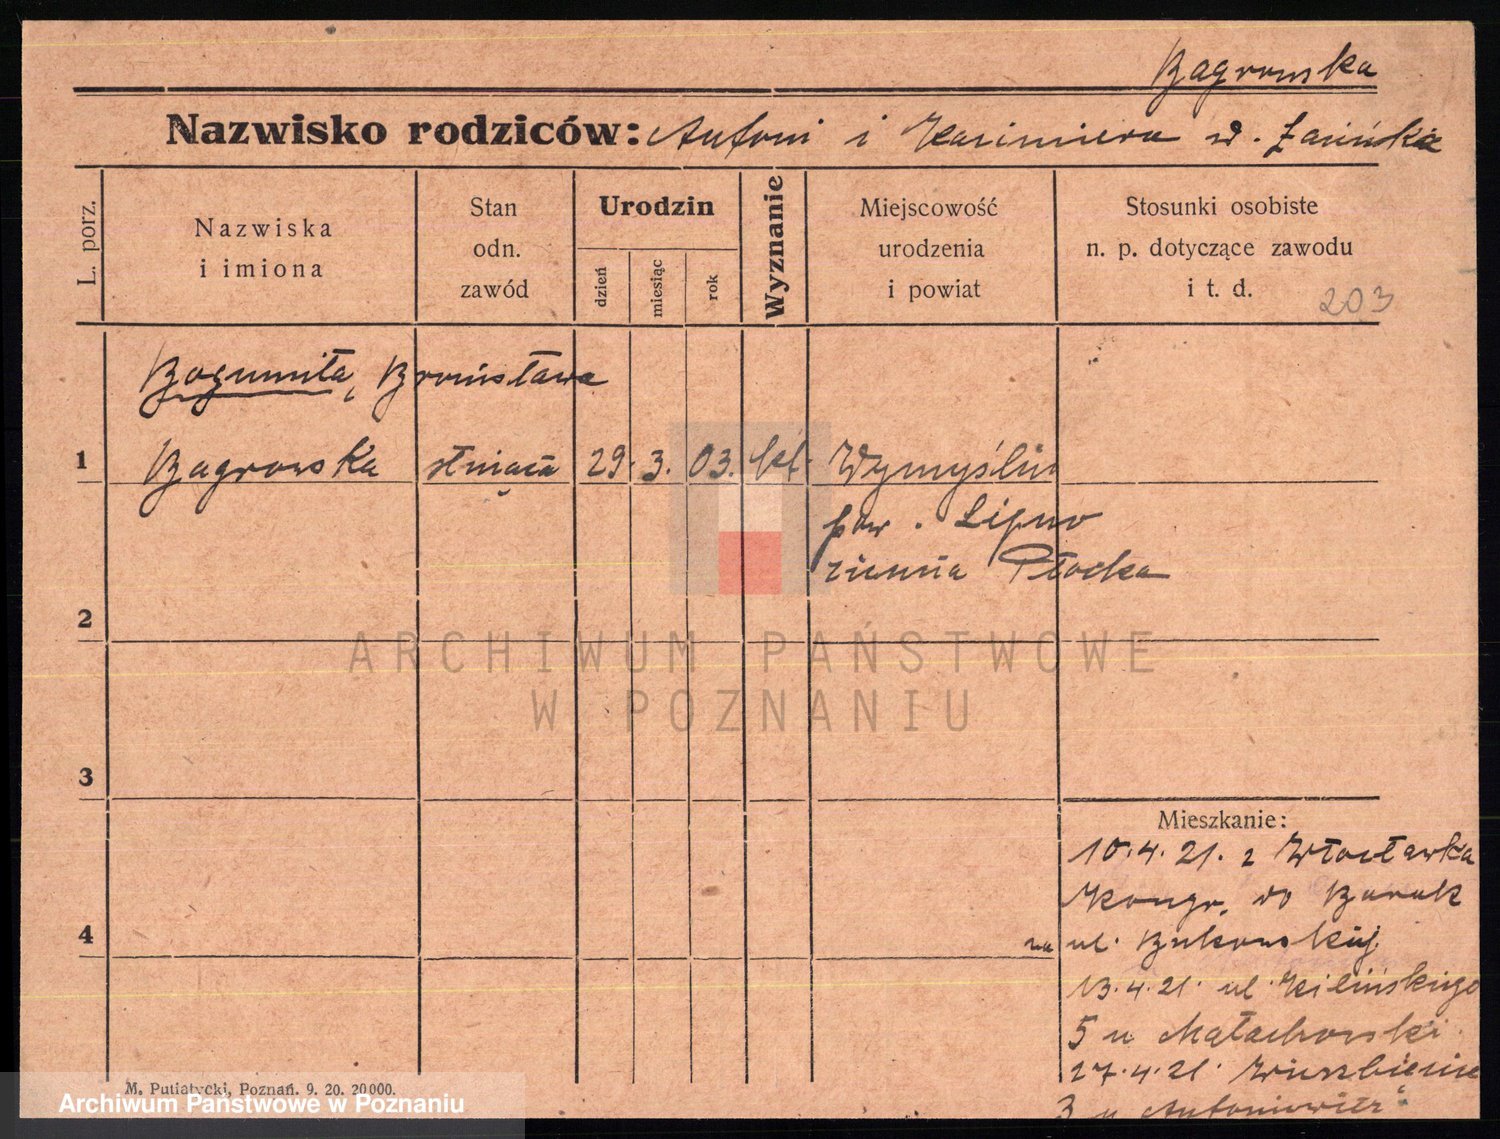 Bagrowska
Nazwisko rodziców: Antoni i Kazimiera d.
L. porz.
Nazwiska
i imiona
Stan
odn.
zawód
Urodzin
dzień
miesiąc
rok
Wyznanie
Miejscowość
urodzenia
i powiat
Stosunki osobiste
n. p. dotyczące zawodu
i t. d.
203
Bogumiła, Bronisława
1 Bagrowska służąca 29. 3. 03. kat. Wymyślin
pow. Lipno
ziemia Płocka
2
3
4
Mieszkanie:
10.4.21. z Włocławka
Kongr. do Barak
na ul. Bukowskiej.
13.4.21. ul. Kilińskiego
5 u Małachowski.
27.4.21. Wierzbięcice
3 u Antoniewicz
M. Putiatycki, Poznań. 9. 20. 20 000.
ARCHIWUM PAŃSTWOWE
W POZNANIU
Archiwum Państwowe w Poznaniu